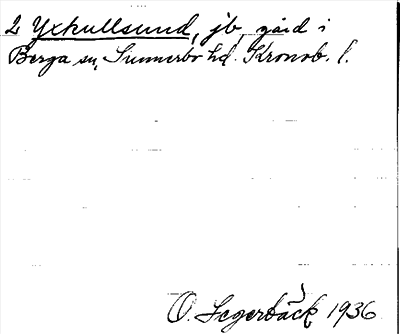 2 Yxkullsund, jb, gård i
Berga sn, Sunnerbo hd. Kronob. l.
O. Segerbäck 1936